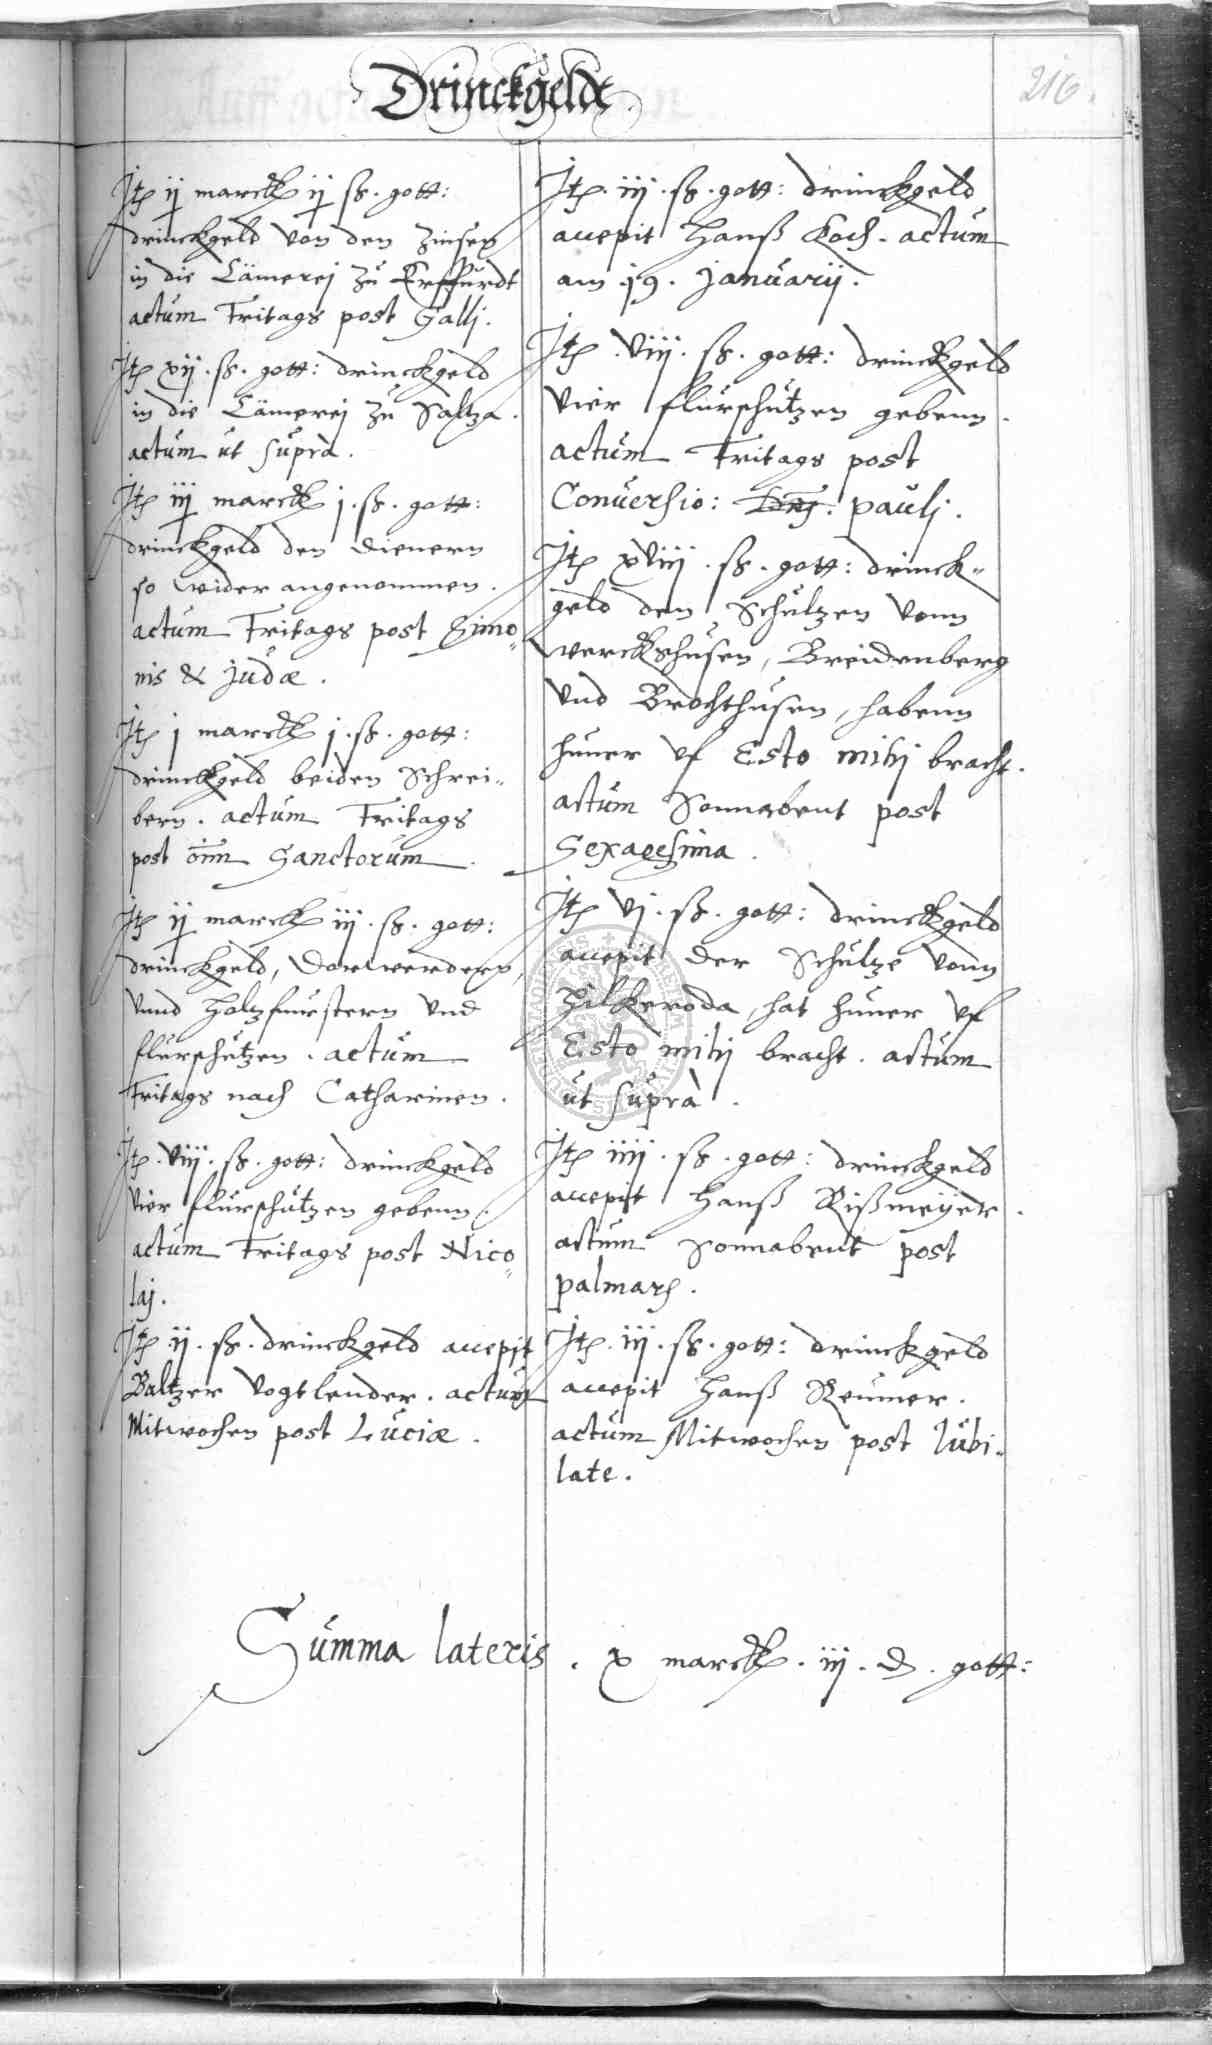 Drinckgeldt
216.
Itm ij marck ij ß. gott:
drinckgeld von den Zinsen
in die Cämerej zu Erffurdt
actum Fritags post Gallj.
Itm xij. ß. gott: drinckgeld
in die Cämerej zu Saltza.
actum ut suprà.
Itm iij marck j. ß. gott:
drinckgeld den dienern
so wider angenommen.
actum Fritags post Simo„
nis & Judæ.
Itm j marck j. ß. gott:
drinckgeld beiden Schrei„
bern. actum Fritags
post oīm Sanctorum.
Itm ij marck iij. ß. gott:
drinckgeld,
vnnd holtzfurstern vnd
flurschutzen. actum
Fritags nach Catharinen.
Itm. viij. ß. gott: drinckgeld
vier flurschützen gebenn.
actum Fritags post Nico„
laj.
Itm. ij. ß. drinckgeld accepit
Baltzer Vogtlender. actum
Mitwochen post Luciæ.
Itm. iij. ß. gott: drinckgeld
accepit Hanß Koch. actum
am 19. Januarij.
Itm. viij. ß. gott: drinckgeld
vier flurschützen gebenn.
actum Fritags post
Conuersio: Paulj.
Itm xviij. ß. gott: drinck„
geld den Schultzen vonn
werckshusen, Breidenberg
vnd Brochthusen, habenn
huner vf Esto mihj bracht.
actum Sonnabent post
Sexagesima.
Itm vj. ß. gott: drinckgeld
accepit der Schultze vonn
Hilkeroda, hat huner vf
Esto mihj bracht. actum
ut suprà.
Itm iiij. ß. gott: drinckgeld
accepit Hanß Rißmeÿer.
actum Sonnabent post
palmarum.
Itm. iij. ß. gott: drinckgeld
accepit Hanß Reumer.
actum Mitwochen post Jubi„
late.
Summa lateris. x marck. iij. d. gott: